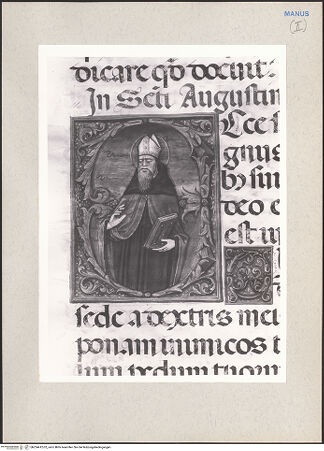 MANUS
(II)
dicare qd docuit:
In Scti Augustin
Ecce s
gnus
bz sin
deo e
est in
sede a dextris meis
ponam inimicos t